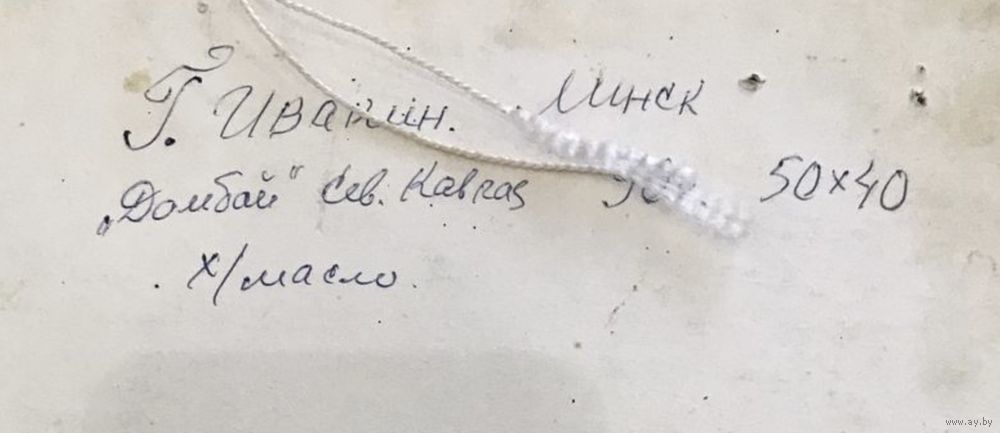 Г. Иванин. Минск
„Домбай" Сев. Кавказ 50х40
х/масло.
www.ay.by